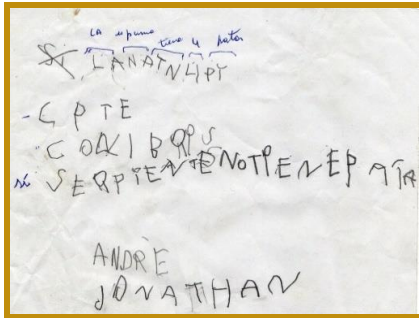 LA iguana tiene 4 patas
LANATNLIPT
- CPTE
- COLIBRIS
sí SERPIENTENOTIENEPATA
ANDRÈ
JONATHAN